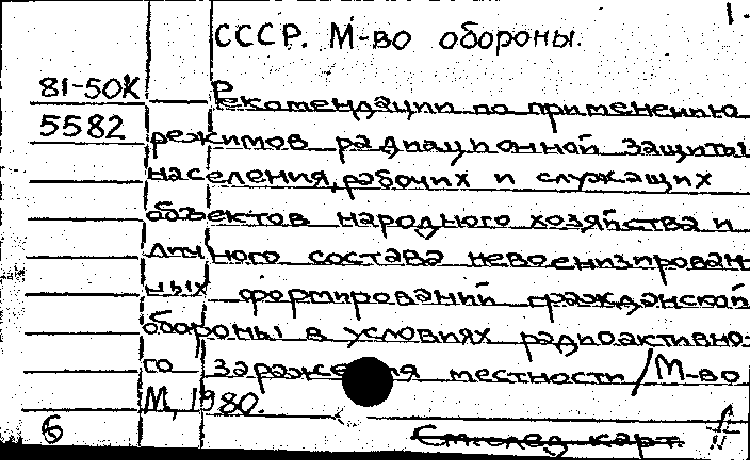 1.
СССР. М-во обороны.
81-50К Рекомендации по применению
5582 режимов радиационной защиты
населения, рабочих и служащих
объектов народного хозяйства и
личного состава невоенизирован-
ных формирований гражданской
обороны в условиях радиоактивно-
го заражения местности / М-во
М, 1980.
6 См. след. карт.